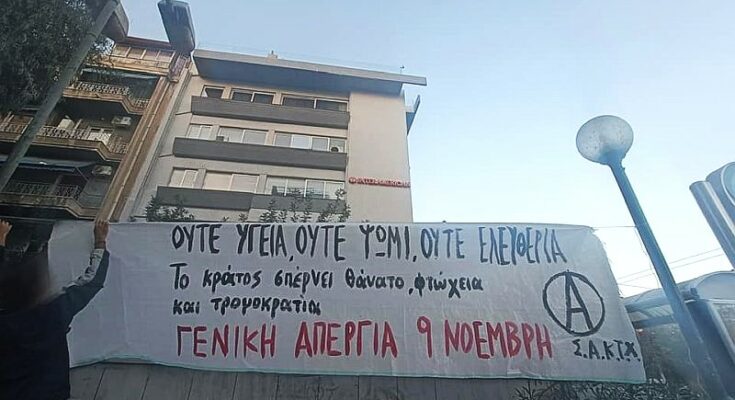 ΟΥΤΕ ΥΓΕΙΑ, ΟΥΤΕ ΨΩΜΙ, ΟΥΤΕ ΕΛΕΥΘΕΡΙΑ
Το κράτος σπέρνει θάνατο, φτώχεια
και τρομοκρατία
ΓΕΝΙΚΗ ΑΠΕΡΓΙΑ 9 ΝΟΕΜΒΡΗ
Α
Σ.Α.Κ.Τ.Χ.